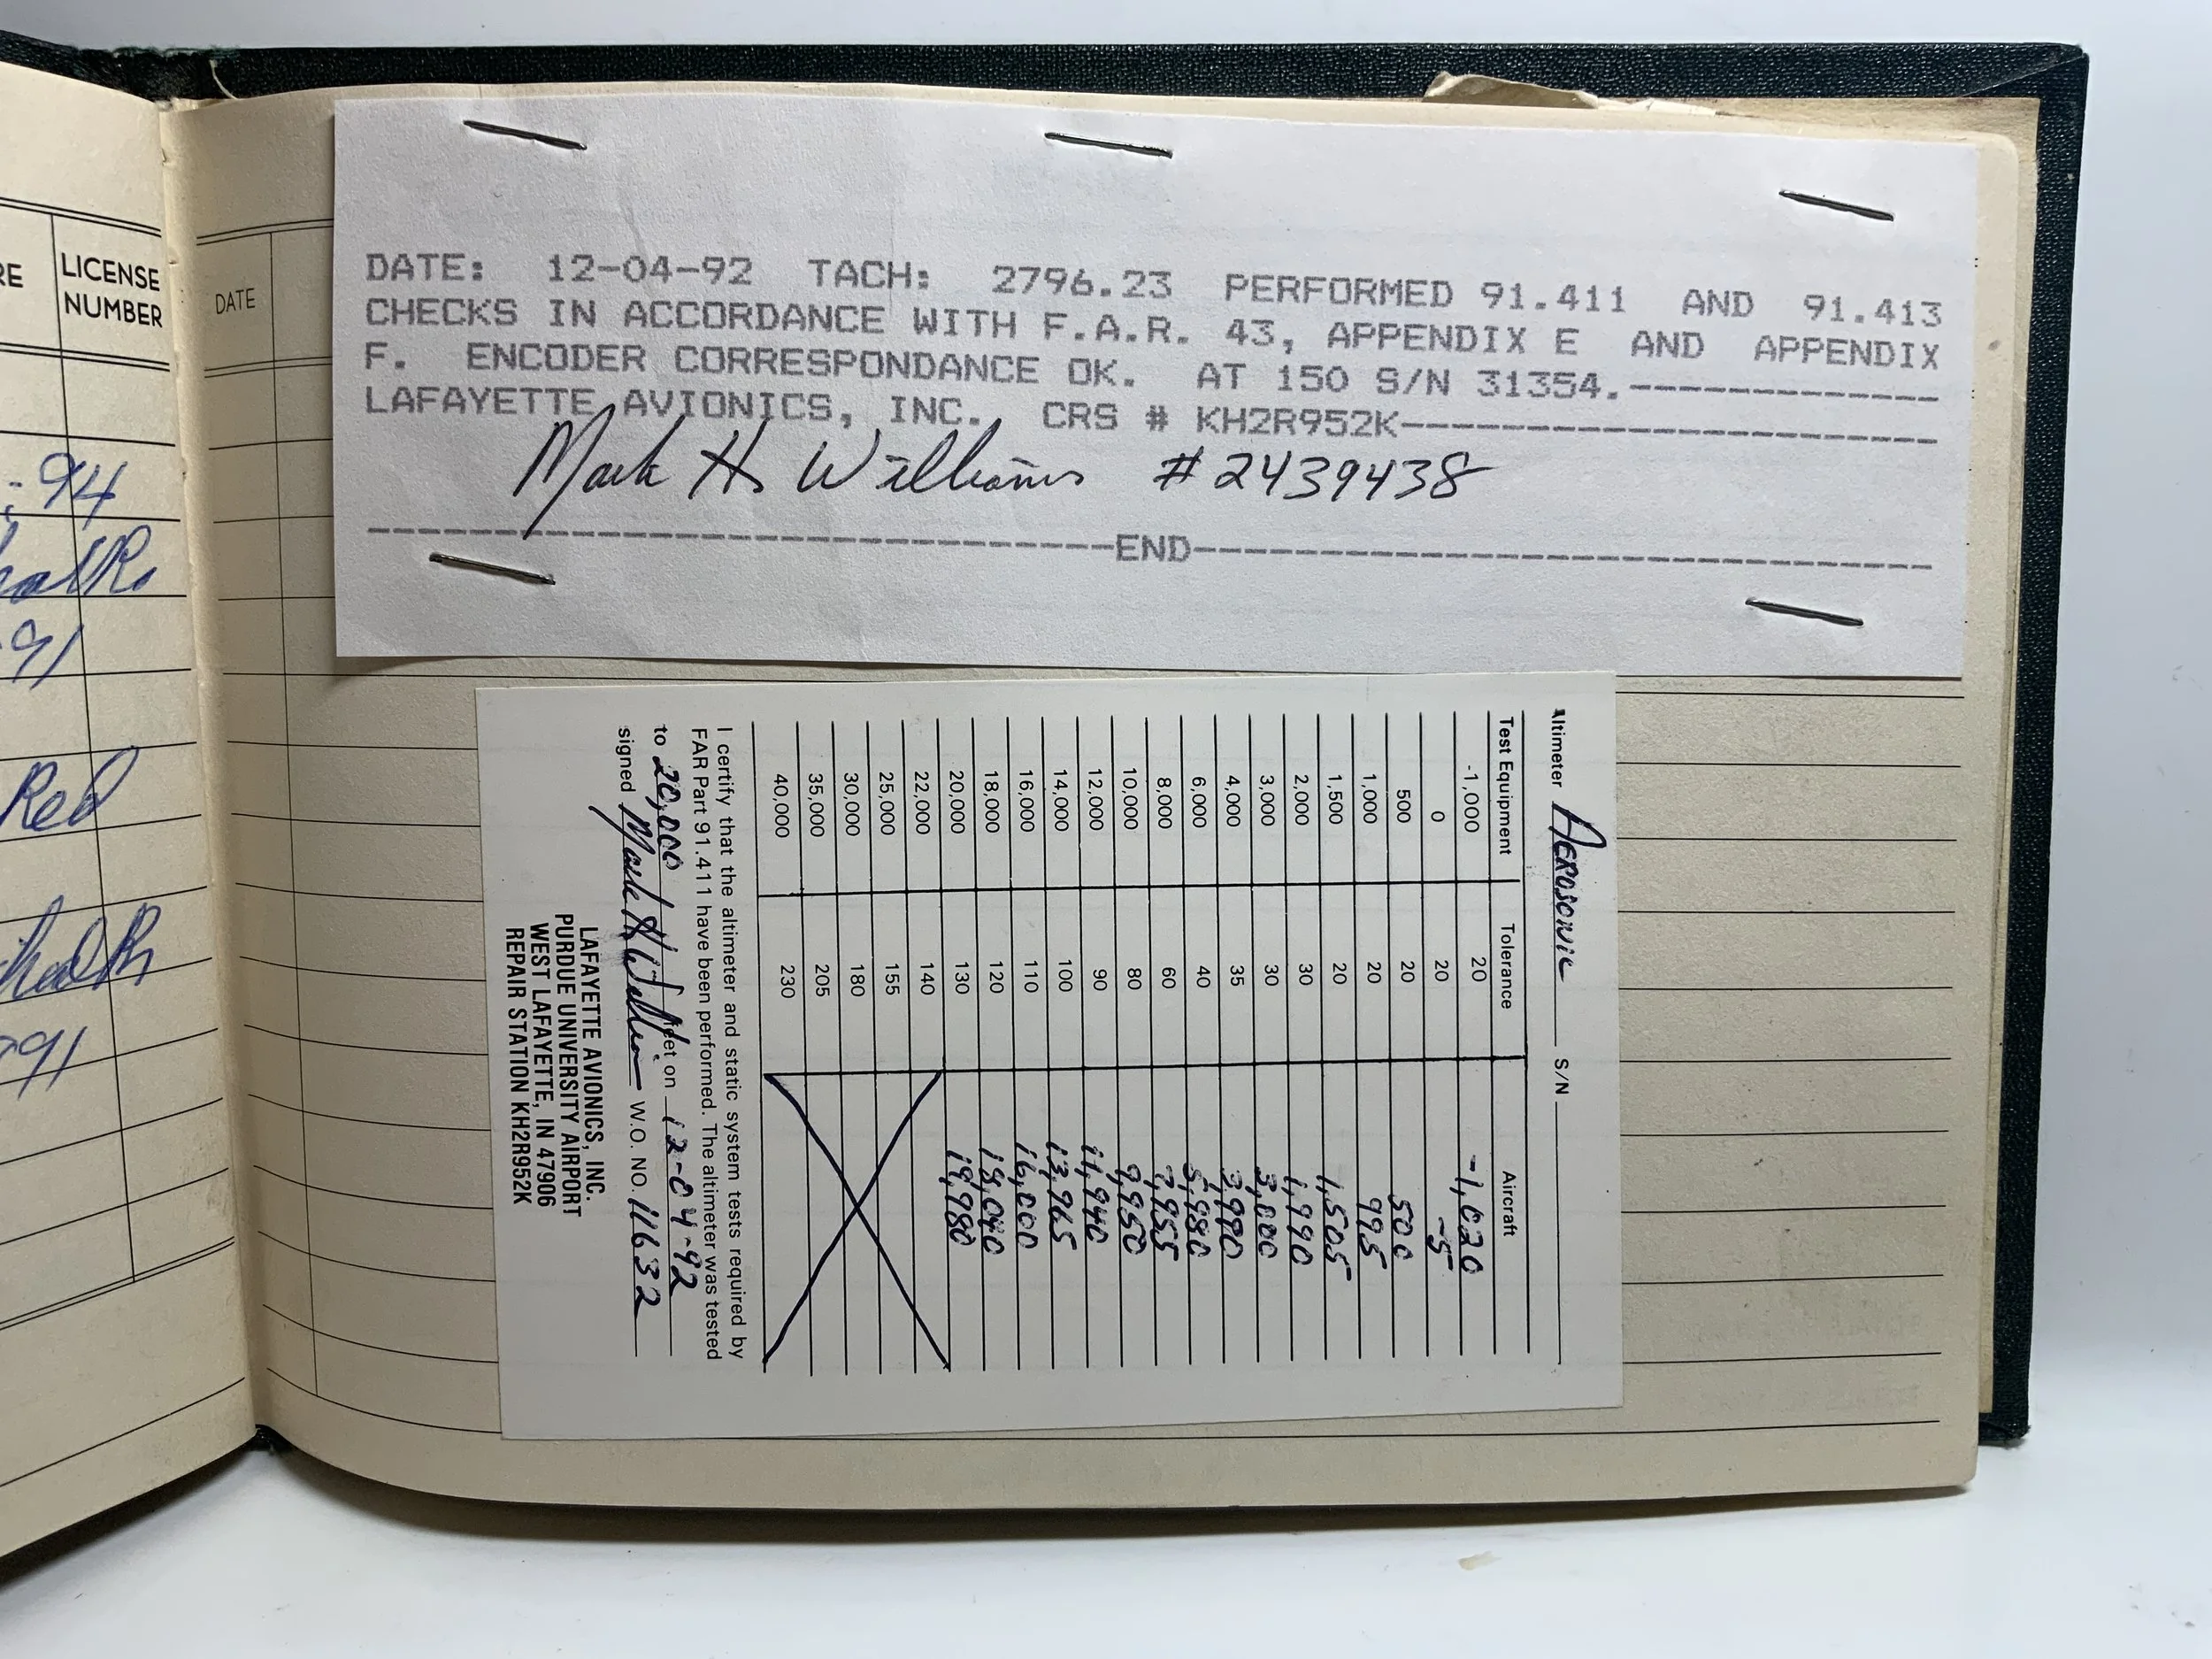 RE
LICENSE
NUMBER
94
91
Red
91
DATE
DATE: 12-04-92 TACH: 2796.23 PERFORMED 91.411 AND 91.413
CHECKS IN ACCORDANCE WITH F.A.R. 43, APPENDIX E AND APPENDIX
F. ENCODER CORRESPONDANCE OK. AT 150 S/N 31354.---------------
LAFAYETTE AVIONICS, INC. CRS # KH2R952K--------------------------
Mark H Williams #2439438
----------------------------------------END----------------------------------------
Altimeter AEROSONIC S/N
Test Equipment Tolerance Aircraft
-1,000 20 -1,020
0 20 -5
500 20 500
1,000 20 995
1,500 20 1,505
2,000 30 1,990
3,000 30 3,000
4,000 35 3,990
6,000 40 5,980
8,000 60 7,955
10,000 80 9,950
12,000 90 11,940
14,000 100 13,965
16,000 110 16,000
18,000 120 18,040
20,000 130 19,980
22,000 140
25,000 155
30,000 180
35,000 205
40,000 230
I certify that the altimeter and static system tests required by
FAR Part 91.411 have been performed. The altimeter was tested
to 20,000 feet on 12-04-92
signed Mark H Williams W.O. NO. 11632
LAFAYETTE AVIONICS, INC.
PURDUE UNIVERSITY AIRPORT
WEST LAFAYETTE, IN 47906
REPAIR STATION KH2R952K